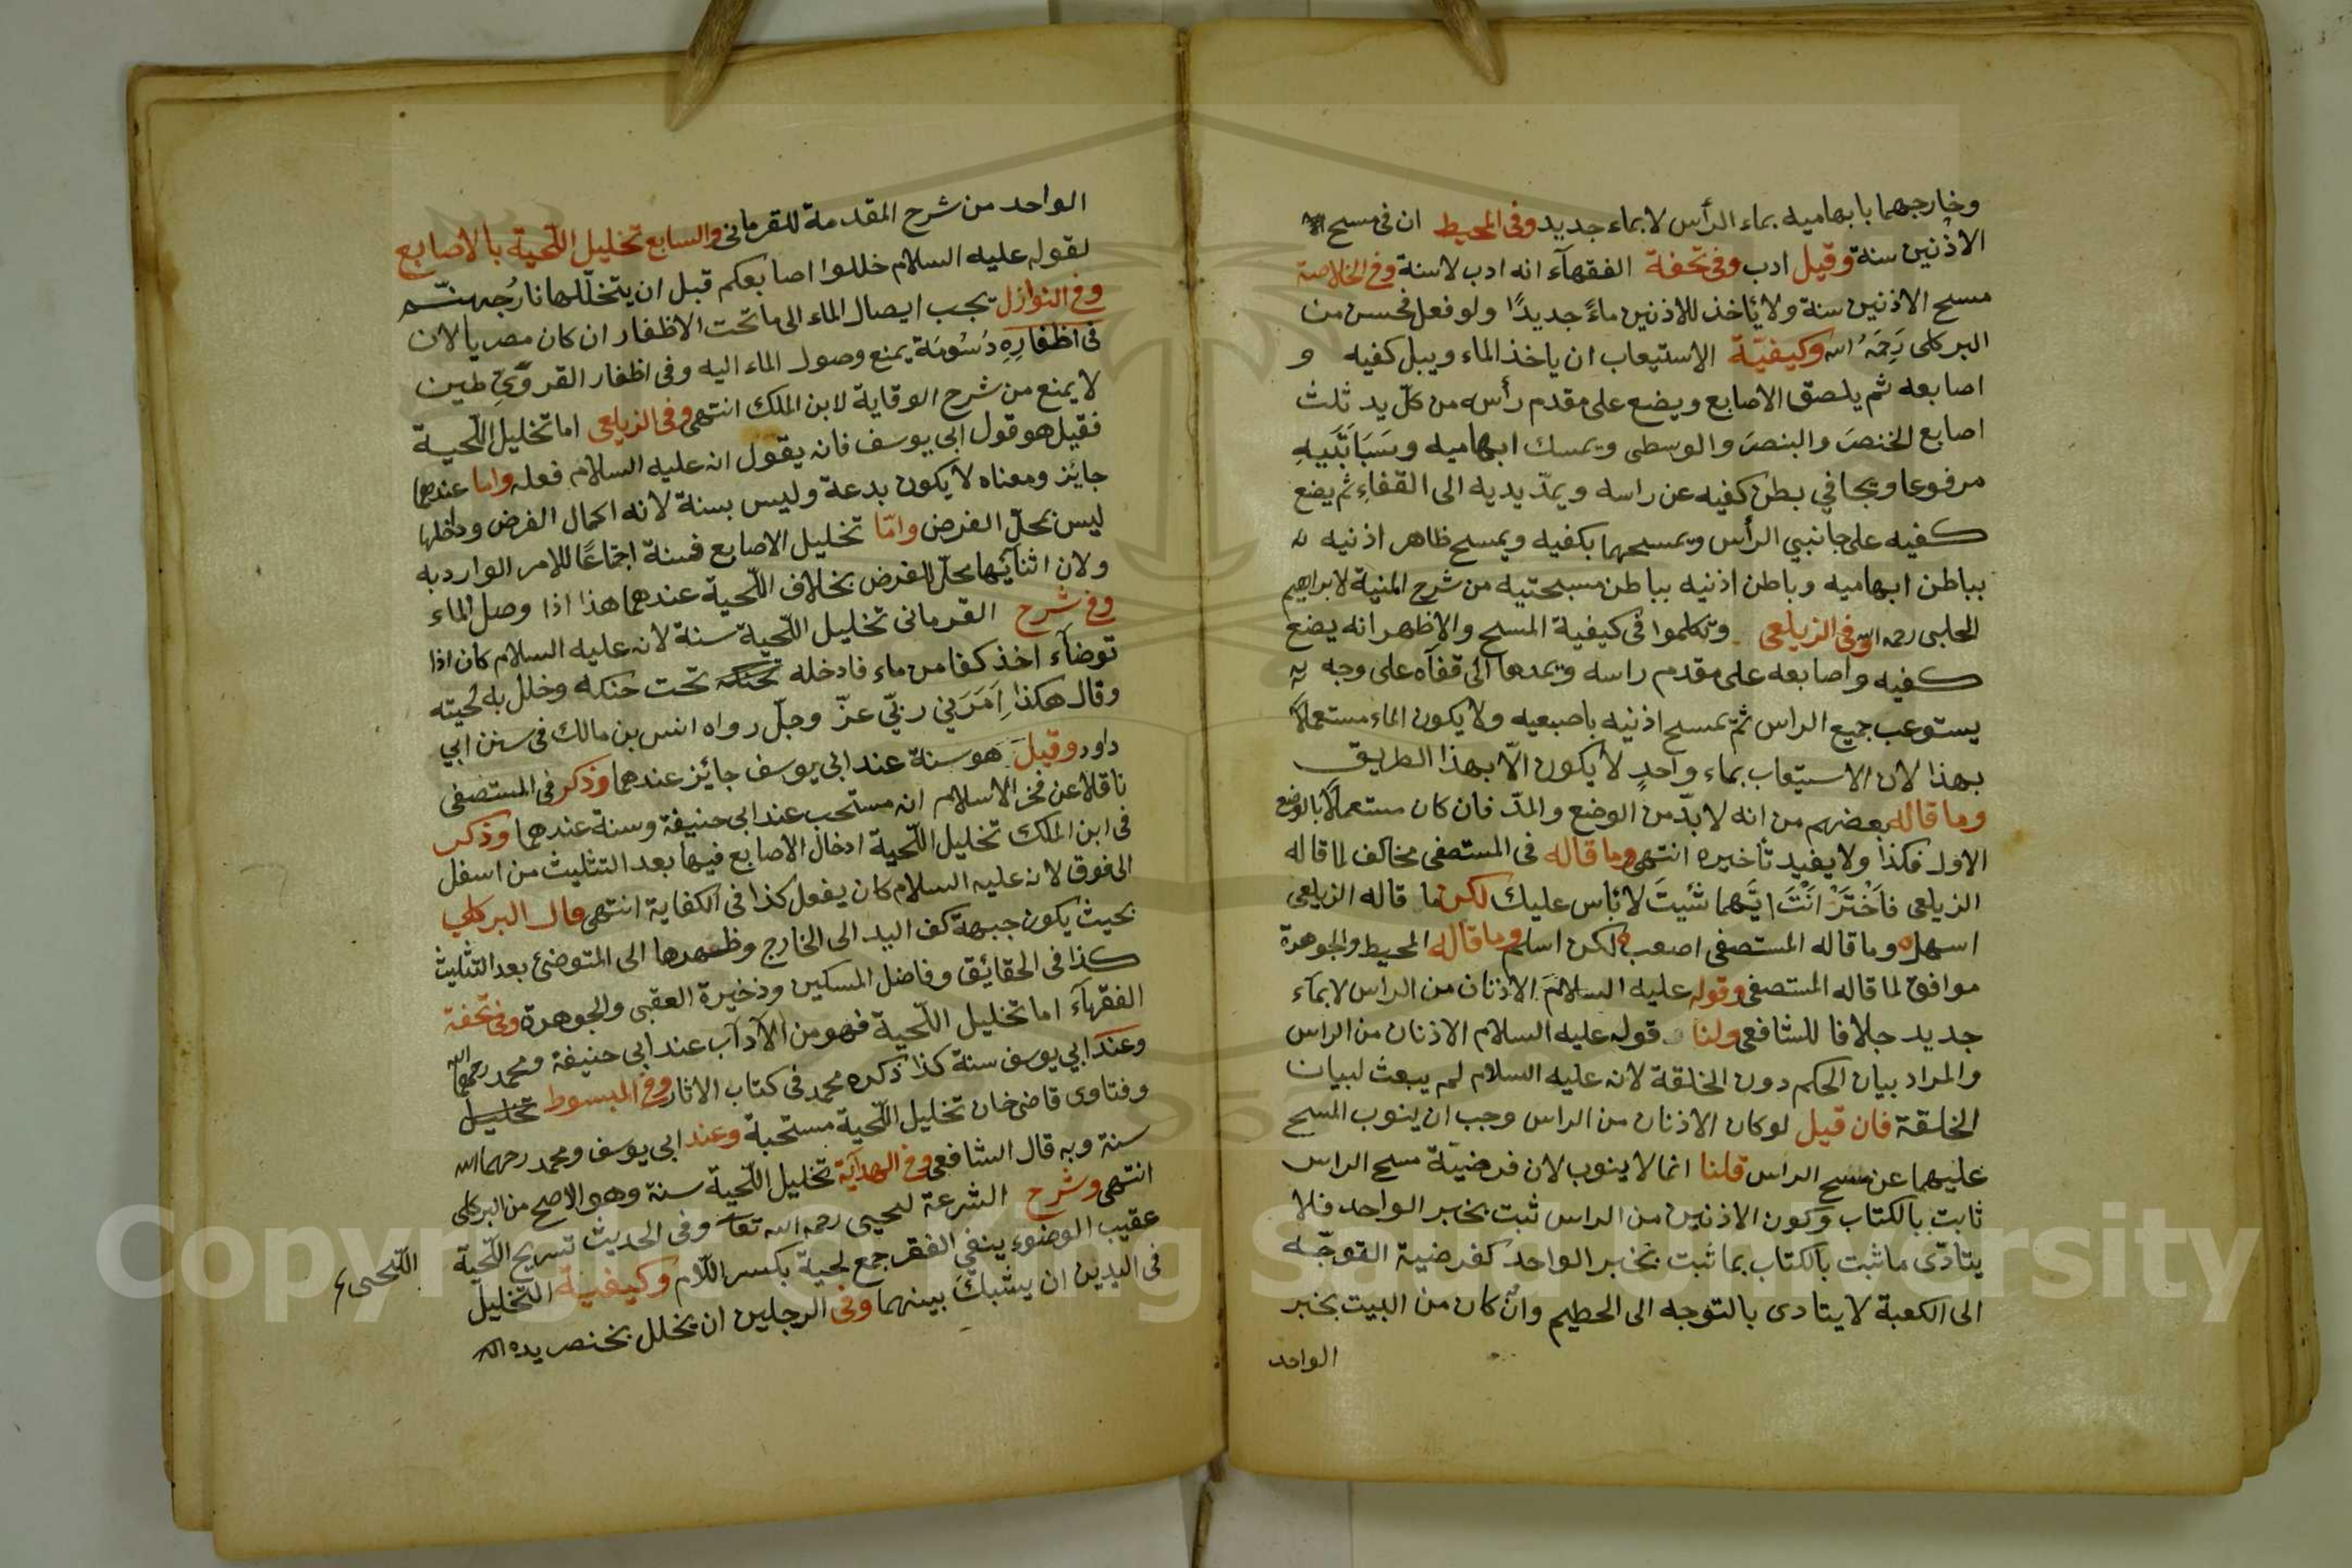 وخارجهما بابهاميه بماء الرأس لا بماء جديد وفى المحيط ان فى مسح
الاذنين سنة وقيل ادب وفى تحفة الفقهآء انه ادب لاسنة وفى الخلاصة
مسح الاذنين سنة ولا يأخذ للاذنين ماءً جديدًا ولو فعل فحسن من
البركلى رَحِمَهُ الله وكيفيّة الاستيعاب ان ياخذ الماء ويبل كفيه و
اصابعه ثم يلصق الاصابع ويضع على مقدم رأسه من كلّ يد ثلث
اصابع الخنصَر والبنصَر والوسطى ويمسك ابهاميه وسَبَابَتَيهِ
مرفوعا ويجافي بطن كفيه عن راسه ويمدّ يديه الى القفاءِ ثم يضع
كفيه على جانبي الرأس ويمسحهما بكفيه ويمسح ظاهر اذنيه
بباطن ابهاميه وباطن اذنيه بباطن مسبحتيه من شرح المنية لابراهيم
الحلبى رحمه الله وفى الزيلعى وتكلموا فى كيفية المسح والاظهر انه يضع
كفيه واصابعه على مقدم راسه ويمدها الى قفآه على وجه
يستوعب جميع الراس ثمّ يمسح اذنيه باصبعيه ولا يكون الماء مستعملاً
بهذا لان الاستيعاب بماء واحدٍ لا يكون الاّ بهذا الطريق
وما قاله بعضهم من انه لا بدّ من الوضع والمدّ فان كان مستعملاً بالوضع
الاول فكذا ولا يفيد تأخيره انتهى وما قاله فى المستصفى مخالف لما قاله
الزيلعى فاَخْتَرْ اَنْتَ ايّهما شئيتَ لا بأس عليك لكن ما قاله الزيلعى
اسهل وما قاله المستصفى اصعب لكن اسلم وما قاله المحيط والجوهرة
موافق لما قاله المستصفى وقوله عليه السلام الاذنان من الراس لا بمآء
جديد جلافا للشافعى ولنا قوله عليه السلام الاذنان من الراس
والمراد بيان الحكم دون الخلقة لانه عليه السلام لم يبعث لبيان
الخلقة فان قيل لو كان الاذنان من الراس وجب ان ينوب المسح
عليهما عن مسح الراس قلنا انما لا ينوب لان فرضيّة مسح الراس
ثابت بالكتاب وكون الاذنين من الراس ثبت بخبر الواحد فلا
يتادّى ما ثبت بالكتاب بما ثبت بخبر الواحد كفرضية التوجّه
الى الكعبة لا يتادى بالتوجه الى الحطيم وان كان من البيت بخبر
الواحد
الواحد من شرح المقدمة للقرمانى والسابع تخليل اللّحية بالاصابع
لقوله عليه السلام خللوا اصابعكم قبل ان يتخلّلها نارُ جهنّم
وفى النوازل يجب ايصال الماء الى ما تحت الاظفار ان كان مصريا لان
فى اظفارِهِ دُسُومَة يمنع وصول الماء اليه وفى اظفار القروّيّ طين
لا يمنع من شرح الوقاية لابن الملك انتهى وفى الزيلعى اما تخليل اللّحية
فقيل هو قول ابى يوسف فانه يقول انه عليه السلام فعله واما عندهما
جايز ومعناه لا يكون بدعة وليس بسنة لانه اكمال الفرض وداخلها
ليس بمحلّ الفرض وامّا تخليل الاصابع فسنة اجماعًا للامر الوارد به
ولان اثنآئها محلّ الفرض بخلاف اللّحية عندهما هذا اذا وصل الماء
وفى شرح القرمانى تخليل اللّحية سنة لانه عليه السلام كان اذا
توضآء اخذ كفا من ماء فادخله تحت حنكه وخلل به لحيته
وقال هكذا اَمَرَني ربّي عزّ وجلّ رواه انس بن مالك فى سنن ابي
داود وقيل هو سنة عند ابى يوسف جايز عندهما وذكر فى المستصفى
ناقلا عن فخر الاسلام انه مستحب عند ابى حنيفة وسنة عندهما وذكر
فى ابن الملك تخليل اللّحية ادخال الاصابع فيها بعد التثليث من اسفل
الى فوق لانه عليه السلام كان يفعل كذا فى الكفاية انتهى قال البركلي
بحيث يكون جبهة كف اليد الى الخارج وظهرها الى المتوضئ بعد التثليث
كذا فى الحقائق وفاضل المسكين وذخيرة العقبى والجوهرة وفى تحفة
الفقهآء اما تخليل اللّحية فهو من الآدآب عند ابى حنيفة ومحمد رحمهما الله
وعند ابي يوسف سنة كذا ذكره محمد فى كتاب الاثار وفى المبسوط تخليل
وفتاوى قاضى خان تخليل اللّحية مستحبة وعند ابى يوسف ومحمد رحمهما الله
سنة وبه قال الشافعى وفى الهدآية تخليل اللّحية سنة وهو الاصح من البركلى
انتهى وشرح الشرعة ليحيى رحمه الله تعا وفى الحديث تسريح اللّحية
عقيب الوضوء ينفي الفقر جمع لحية بكسر اللّام وكيفية التخليل
اللّحى
فى اليدين ان يشبكَ بينهما وفى الرجلين ان يخلل بخنصر يده
Copyright © King Saud University